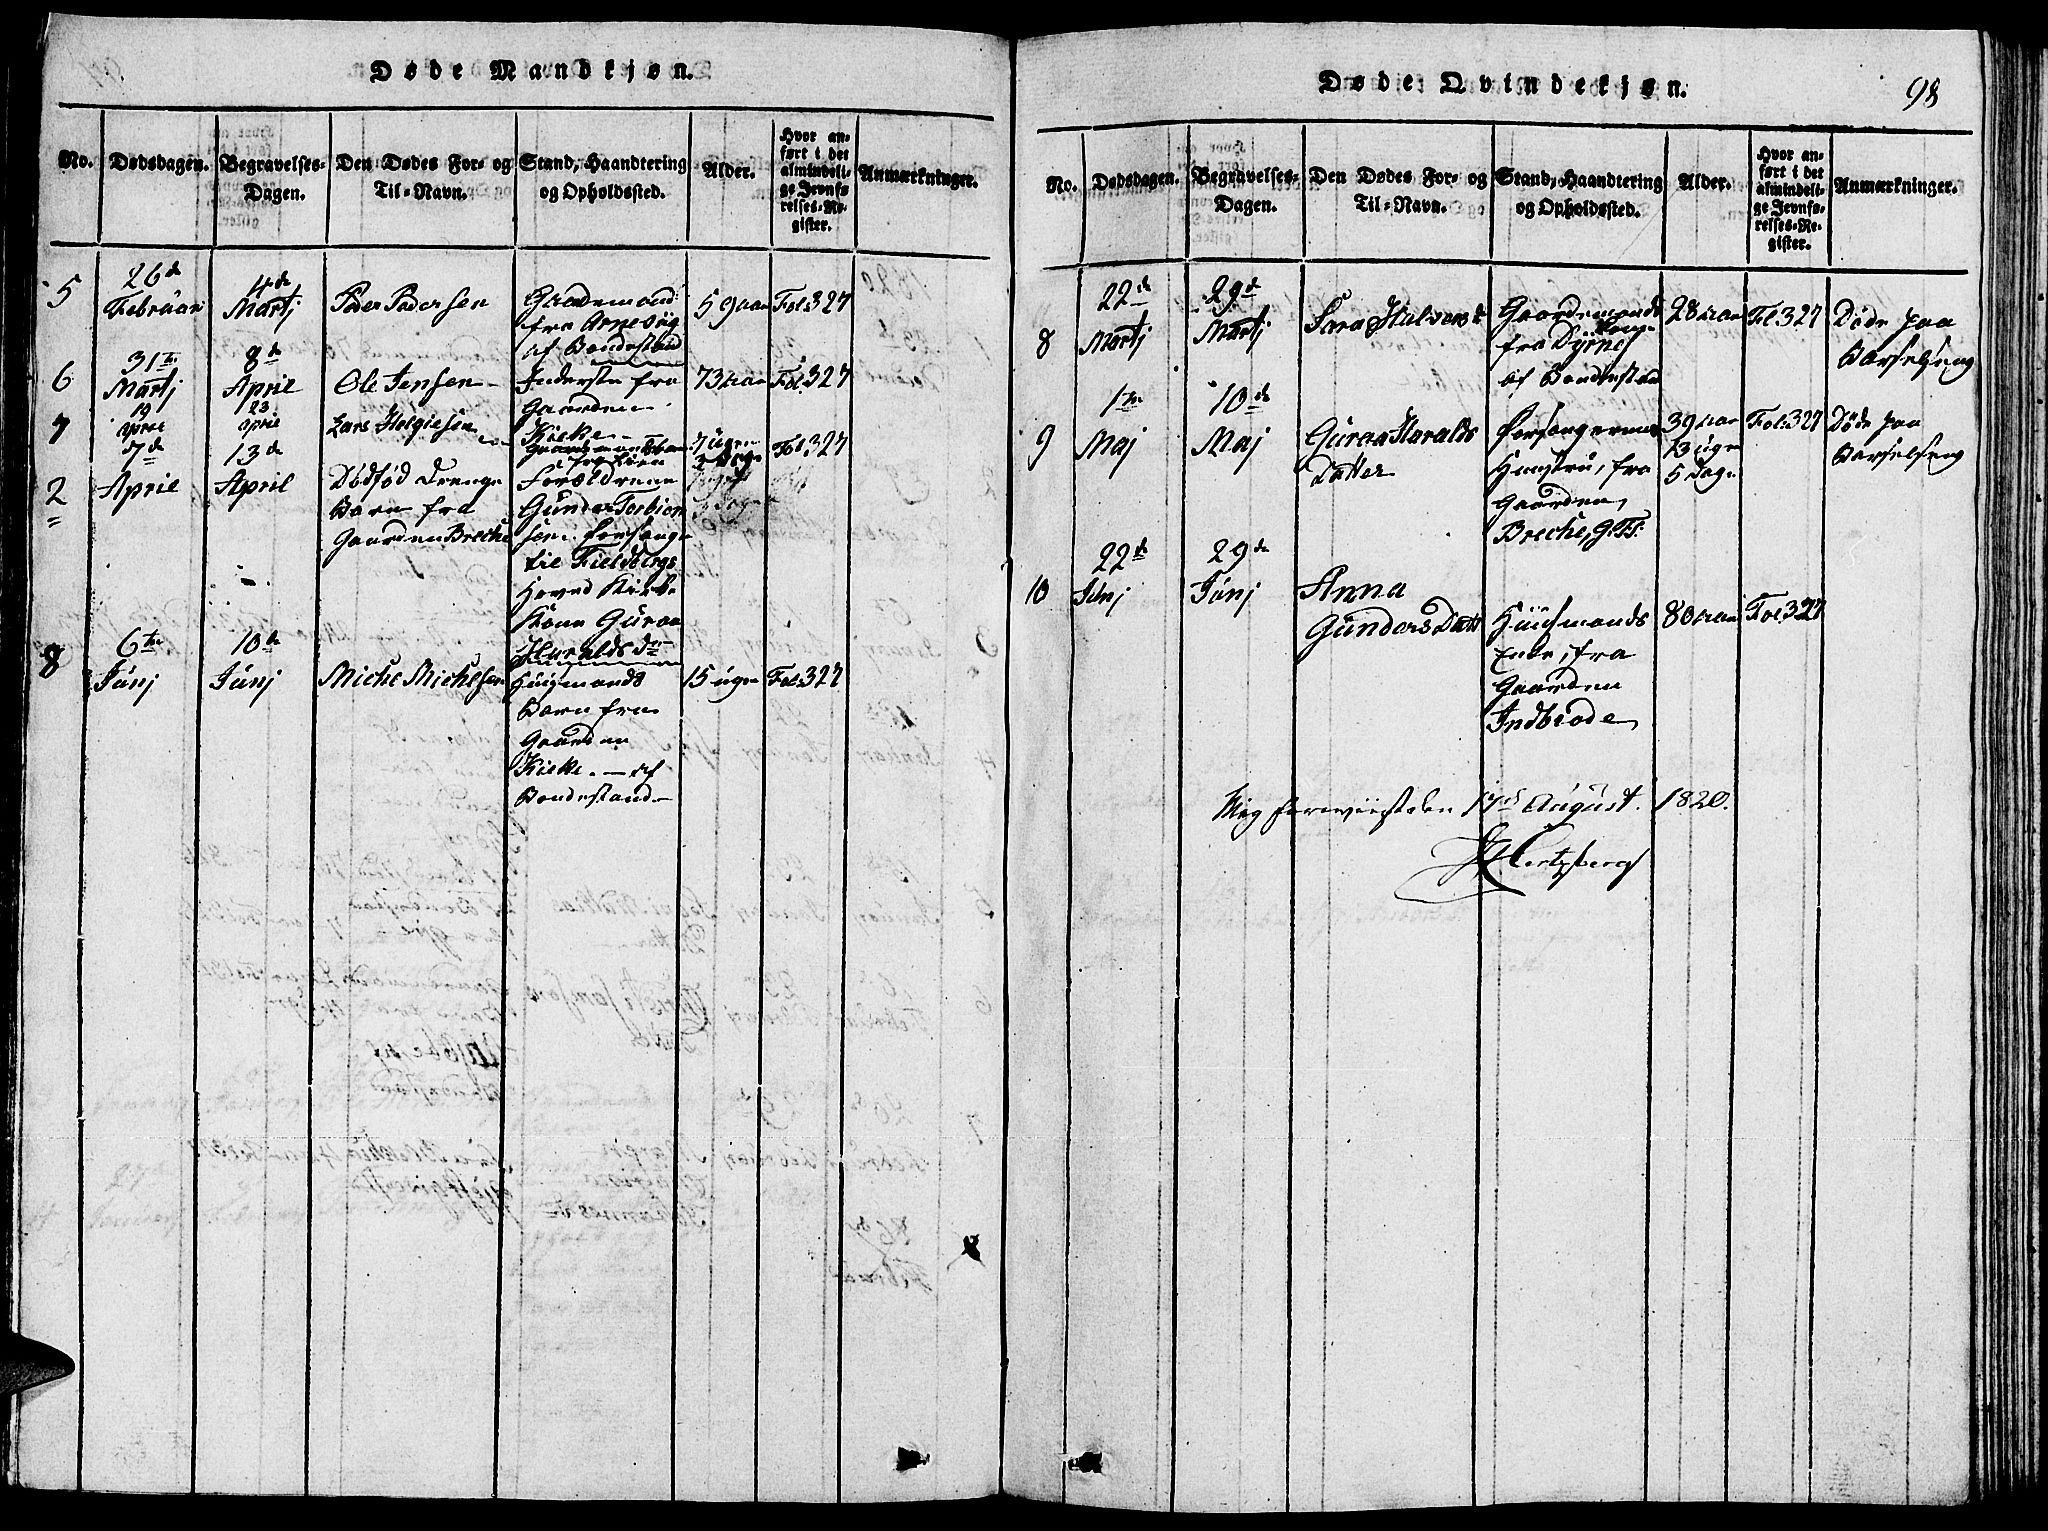 Døde Mandkjøn.
No.
Dødsdagen.
Begravelses-
Dagen.
Den Dødes For- og
Til-Navn.
Stand, Haandtering
og Opholdssted.
Alder.
Hvor an-
ført i det
almindeli-
ge Jevnfø-
relses-Re-
gister.
Anmærkninger.
5
26de
Februari
4de
Martj
Peder Pedersen
Gaardemand
fra Arnevig
af Bondestand
59 aar
Fol: 327
6
31te
Martj
8de
April
Ole Jensen
Inderste fra
Gaarden
Kirke
73 aar
Fol: 327
7
19
April
23
April
Lars Helgiesen
7 Ugen
Fol: 327
2
7de
April
13de
April
Dødfød Drenge
Barn fra
Gaarden Breche
Forældrene
Gunder Torbiørn
sen. Forsanger
til Fieldbergs
Hoved Kirke
Kone Guroe
Haralds Dr
8
6te
Junj
10de
Junj
Michel Michelsen
Huusmands
Barn fra
Gaarden
Kirke. – af
Bondestand
15 uger
Fol: 327
Døde Qvindekjøn.
98
No.
Dødsdagen.
Begravelses-
Dagen.
Den Dødes For- og
Til-Navn.
Stand, Haandtering
og Opholdssted.
Alder.
Hvor an-
ført i det
almindeli-
ge Jevnfø-
relses-Re-
gister.
Anmærkninger.
8
22de
Martj
29de
Martj
Sara Halvorsd
Gaardemands
Kone
fra Dyrnes
af Bondestand
28 aar
Fol: 327
Døde paa
Barselseng
9
1te
Maj
10de
Maj
Guroe Haralds
Datter
Forsangerens
Hustru, fra
Gaarden,
Breche, G. Ts:
39 aar
13 uger
5 Dage
Fol: 327
Døde paa
Barselseng
10
22de
Junj
29de
Junj
Anna
Gunders Datt
Huusmands
Enke, fra
Gaarden
Indbiode
80 aar
Fol: 327
Mig foreviist den 17de August. 1820.
Hertzberg